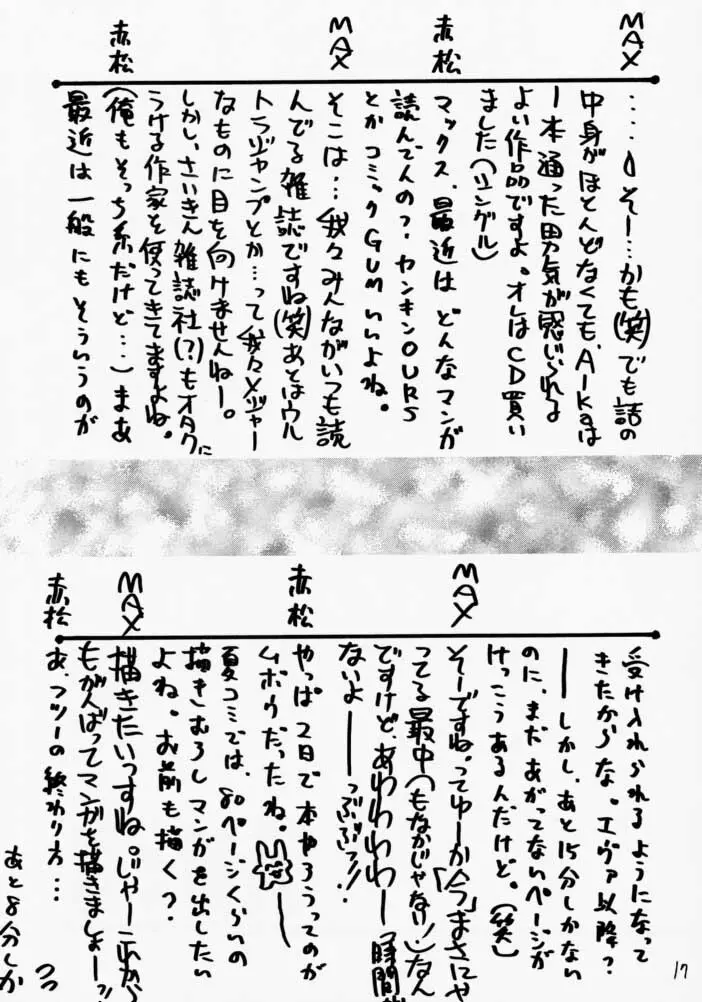 MAX
‥‥うそー…かも(笑)でも話の
中身がほとんどなくても、AIKaは
1本通った男気が感じられる
よい作品ですよ。オレはCD買い
ました(シングル)
赤松
マックス、最近はどんなマンガ
読んでんの?ヤンキンOURS
とかコミックGUMいいよね。
MAX
そこは…我々みんながいつも読
んでる雑誌ですね(笑)あとはウル
トラジャンプとか…って我々メジャー
なものに目を向けませんねー。
赤松
しかし、さいきん雑誌社(?)もオタクに
うける作家を使ってきてますよね。
(俺もそっち系だけど…)まあ
最近は一般にもそういうのが
受け入れられるようになって
きたからな。エヴァ以降?
――しかし、あと15分しかない
のに、まだあがってないページが
けっこうあるんだけど。(笑)
MAX
そーですね。ってゆーか「今」まさにや
ってる最中(もなかじゃない!)なん
ですけど、あわわわわー時間が
ないよ――っぷぷっ!!
赤松
やっぱ2日で本やろうってのが
ムボウだったね。――
夏コミでは、80ページくらいの
描きむろしマンガを出したい
よね。お前も描く?
MAX
描きたいっすね。じゃーこれから
もがんばってマンガを描きましょーっ!!
赤松
あ、フツーの終わり方…
あと8分しか
17